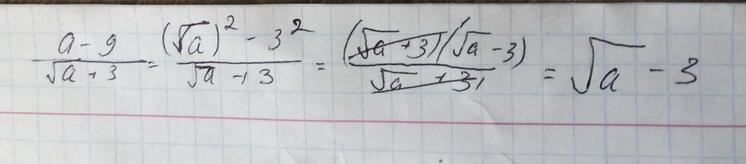 (a - 9)/(√a + 3) = ((√a)² - 3²)/(√a + 3) = ((√a + 3)(√a - 3))/(√a + 3) = √a - 3